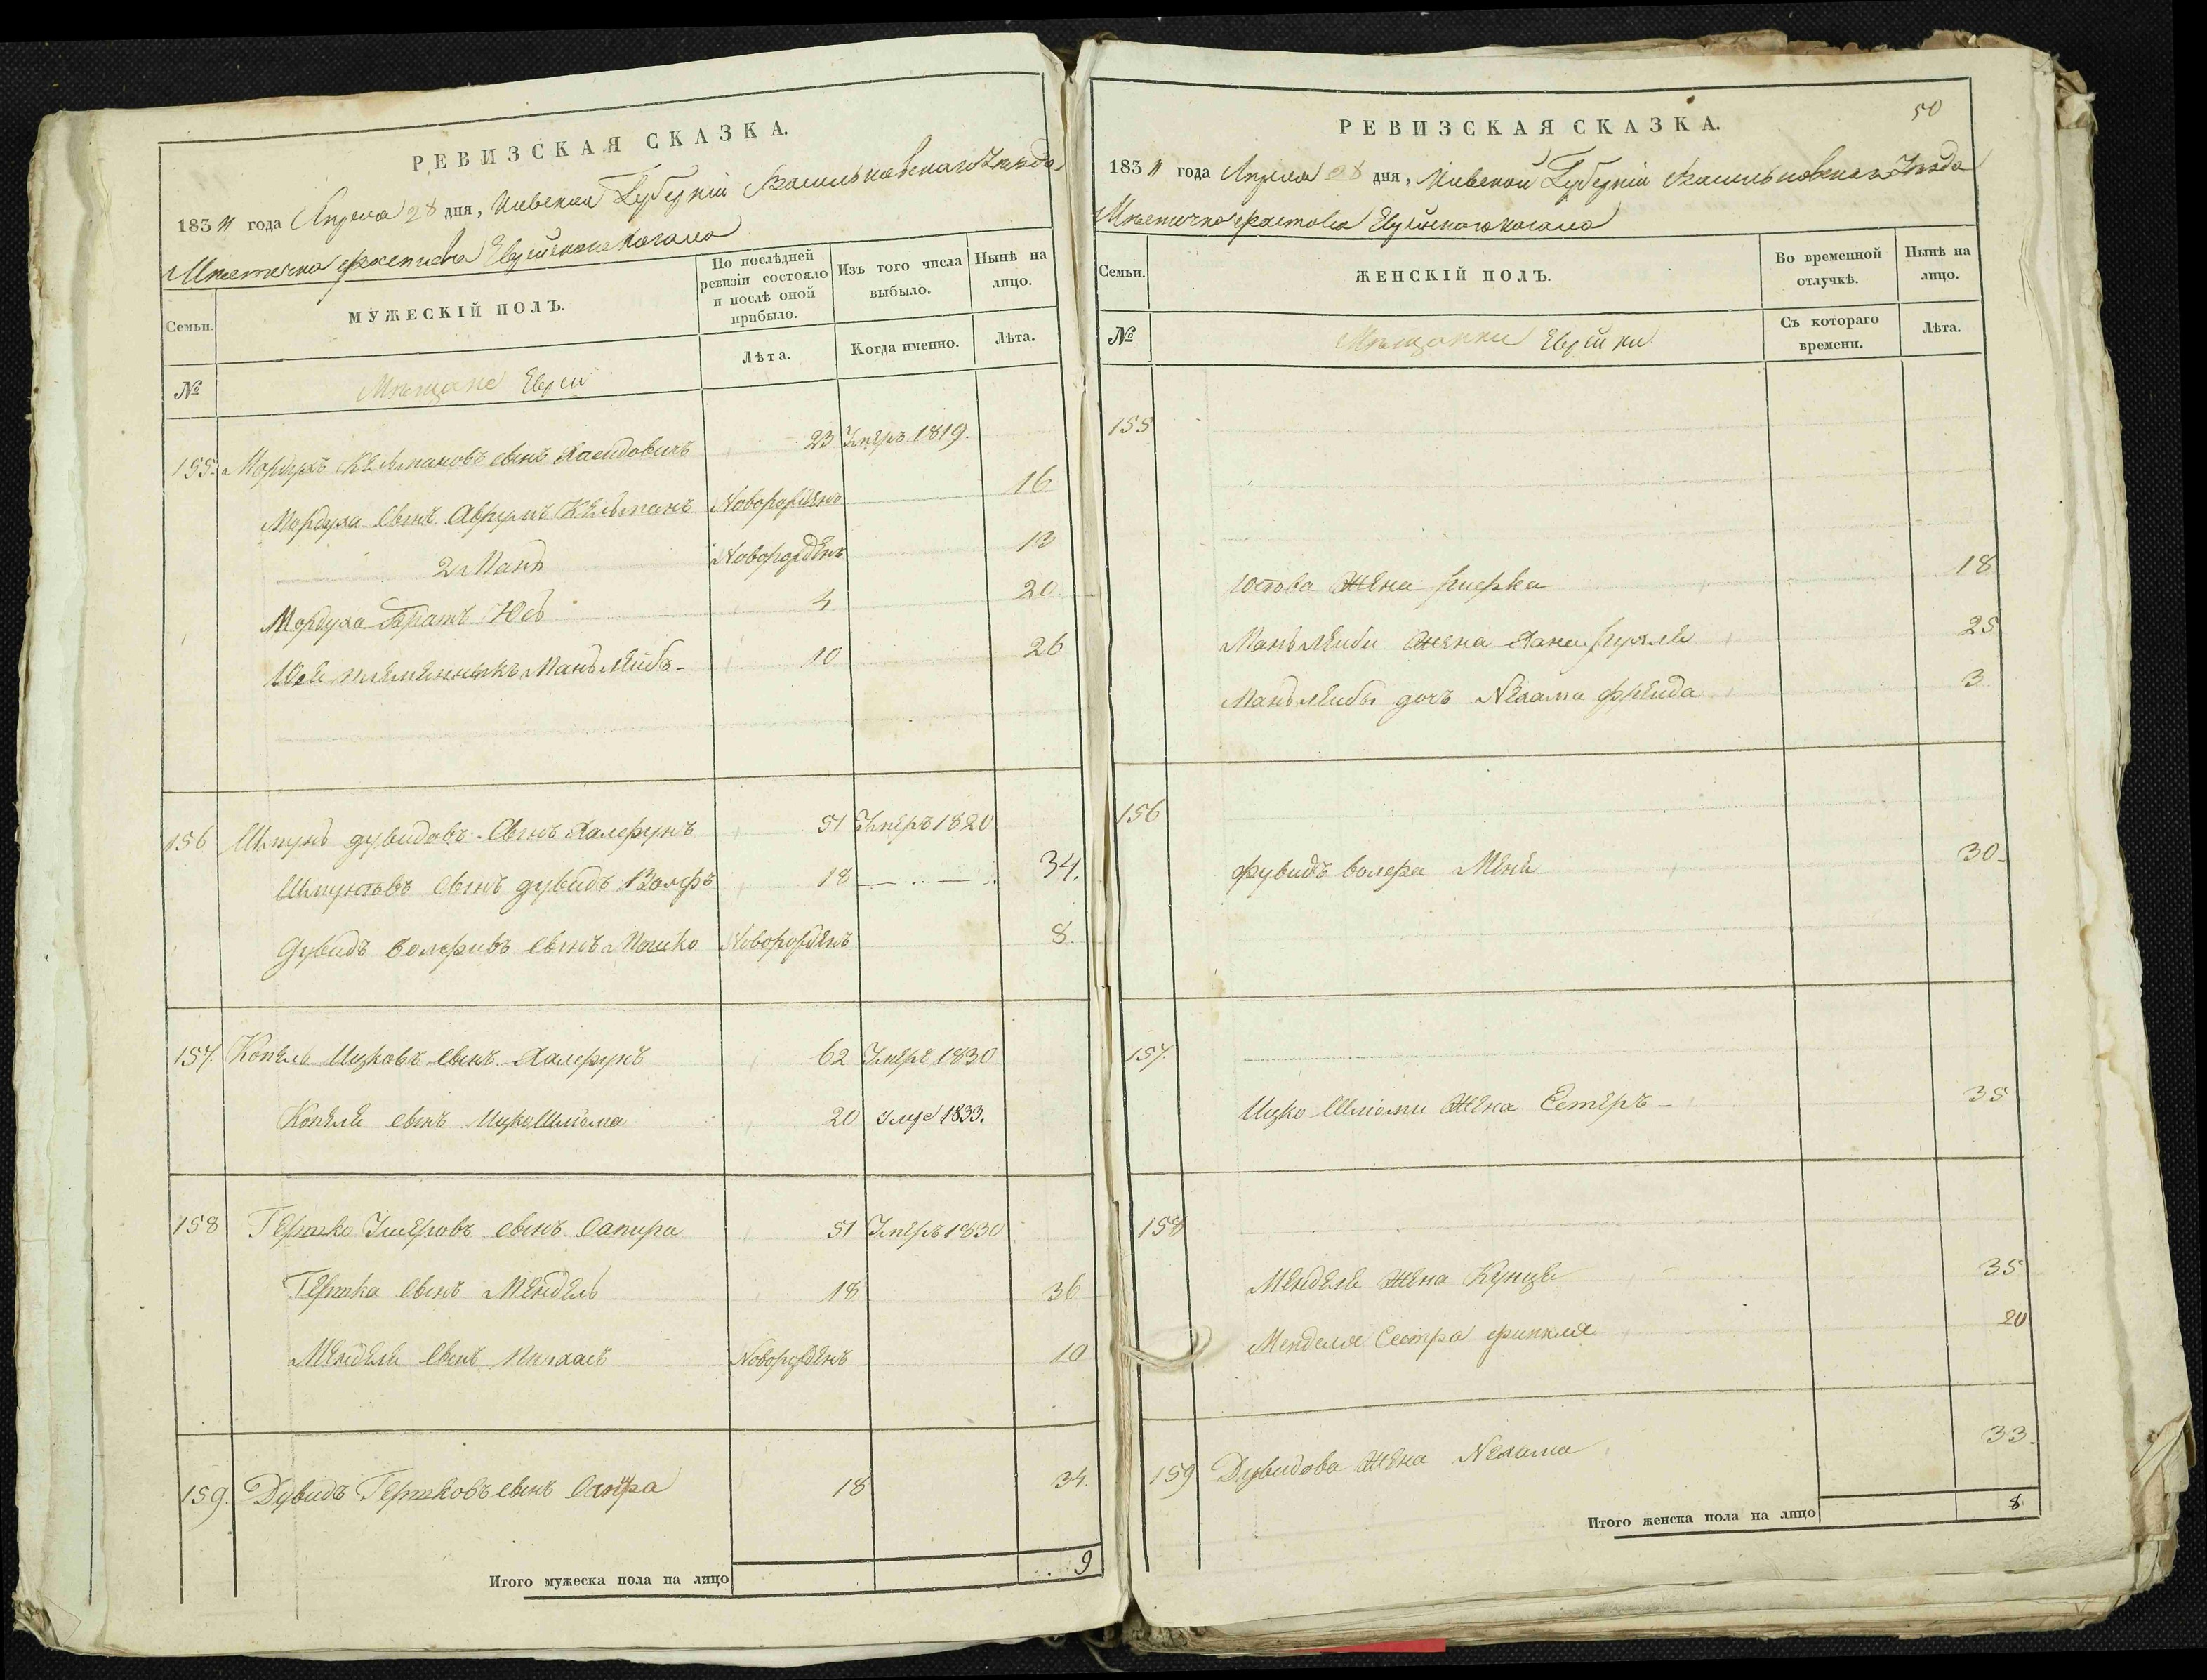 РЕВИЗСКАЯ СКАЗКА.
1834 года Апреля 28 дня, Киевской Губерніи Васильковскаго Уезда
Местечка Фастова Еврейскаго Кагала
Семьи.
МУЖЕСКІЙ ПОЛЪ.
По послѣдней ревизіи состояло и послѣ оной прибыло.
Изъ того числа выбыло.
Нынѣ на лицо.
№
Мещане Евреи
Лѣта.
Когда именно.
Лѣта.
155. Мордухъ Кельмановъ сынъ 23 Умеръ 1819.
Мордуха сынъ Аврумъ Кельманъ Новорожденъ 16
2 Мань Новорожденъ 13
Мордуха Братъ Юсь 4 20
Юся племянникъ Маньлейбъ 10 26
156 Шмунь Дувидовъ Сынъ Халефунъ 51 Умеръ 1820
Шмунювъ сынъ Дувидъ Волфъ 18 34.
Дувидъ Волфивъ сынъ Мошко Новорожденъ 8.
157. Копель Ицковъ сынъ Халефунъ 62 Умеръ 1830
Копеля сынъ Ицко Шліома 20 1833.
158 Гершко Умеровъ сынъ Сапира 51 Умеръ 1830
Гершка сынъ Мендель 18 36
Менделя сынъ Пинхасъ Новорожденъ 10
159. Дувидъ Гершковъ сынъ Сапира 18 34.
Итого мужеска пола на лицо 9
50
РЕВИЗСКАЯ СКАЗКА.
1834 года Апреля 28 дня, Киевской Губерніи Васильковскаго Уезда
Местечка Фастова Еврейскаго Кагала
Семьи.
ЖЕНСКІЙ ПОЛЪ.
Во временной отлучкѣ.
Нынѣ на лицо.
№
Мещанки Еврейки
Съ котораго времени.
Лѣта.
155
Юсова Жена Ривка 18
Маньлейби Жена Хана 25
Маньлейбы дочъ Нехама Фрейда 3
156
Дувидъ Волфа Меня 30
157.
Ицко Шліоми Жена Естеръ 35
158
Менделя Жена Кунця 35
Менделя Сестра 20
159 Дувидова Жена Нехама 33.
Итого женска пола на лицо 8